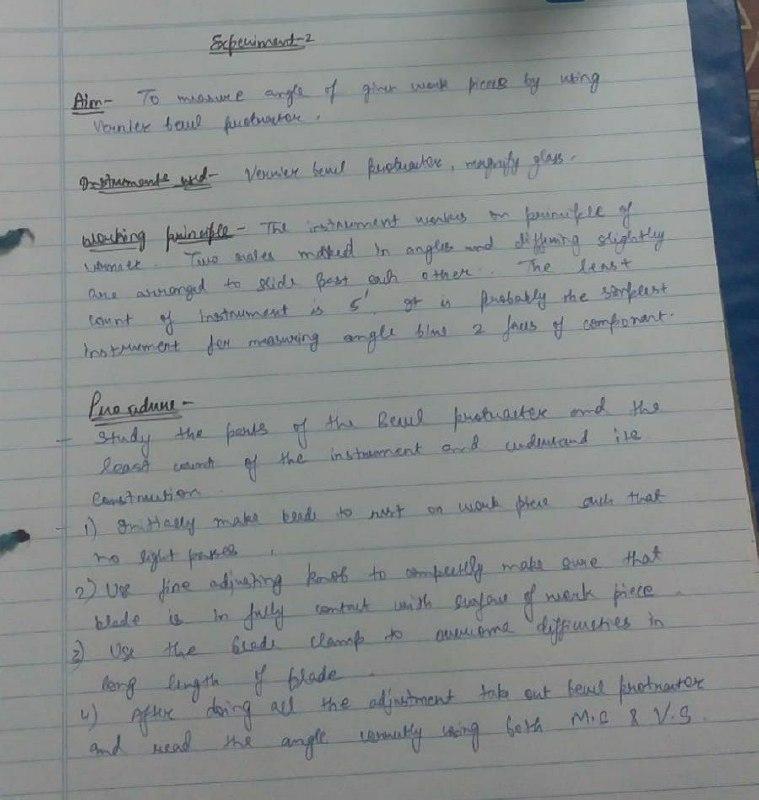 Experiment-2
Aim- To measure angle of given work piece by using
Vernier bevel protractor.
Instruments used- Vernier bevel protractor, magnify glass.
Working principle- The instrument works on principle of
vernier. Two scales marked in angles and differing slightly
are arranged to slide past each other. The least
count of instrument is 5'. It is probably the simplest
instrument for measuring angle b/w 2 faces of component.
Procedure-
- Study the parts of the Bevel protractor and the
least count of the instrument and understand its
construction.
- 1) Initially make blade to rest on work piece such that
no light passes.
2) Use fine adjusting knob to completely make sure that
blade is in fully contact with surface of work piece.
3) Use the blade clamp to overcome difficulties in
long length of blade.
4) After doing all the adjustment take out bevel protractor
and read the angle correctly using both M.S & V.S.